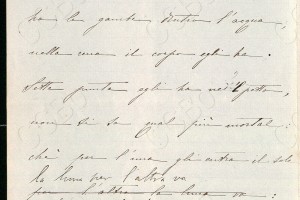 ha le gambe dentro l'acqua,
nella cuna il corpo egli ha.
Sette punta egli ha nel petto,
non si sa qual più mortal:
chè per l'una gli entra il sole
la luna per l'altra va
per l'altra la luna va: